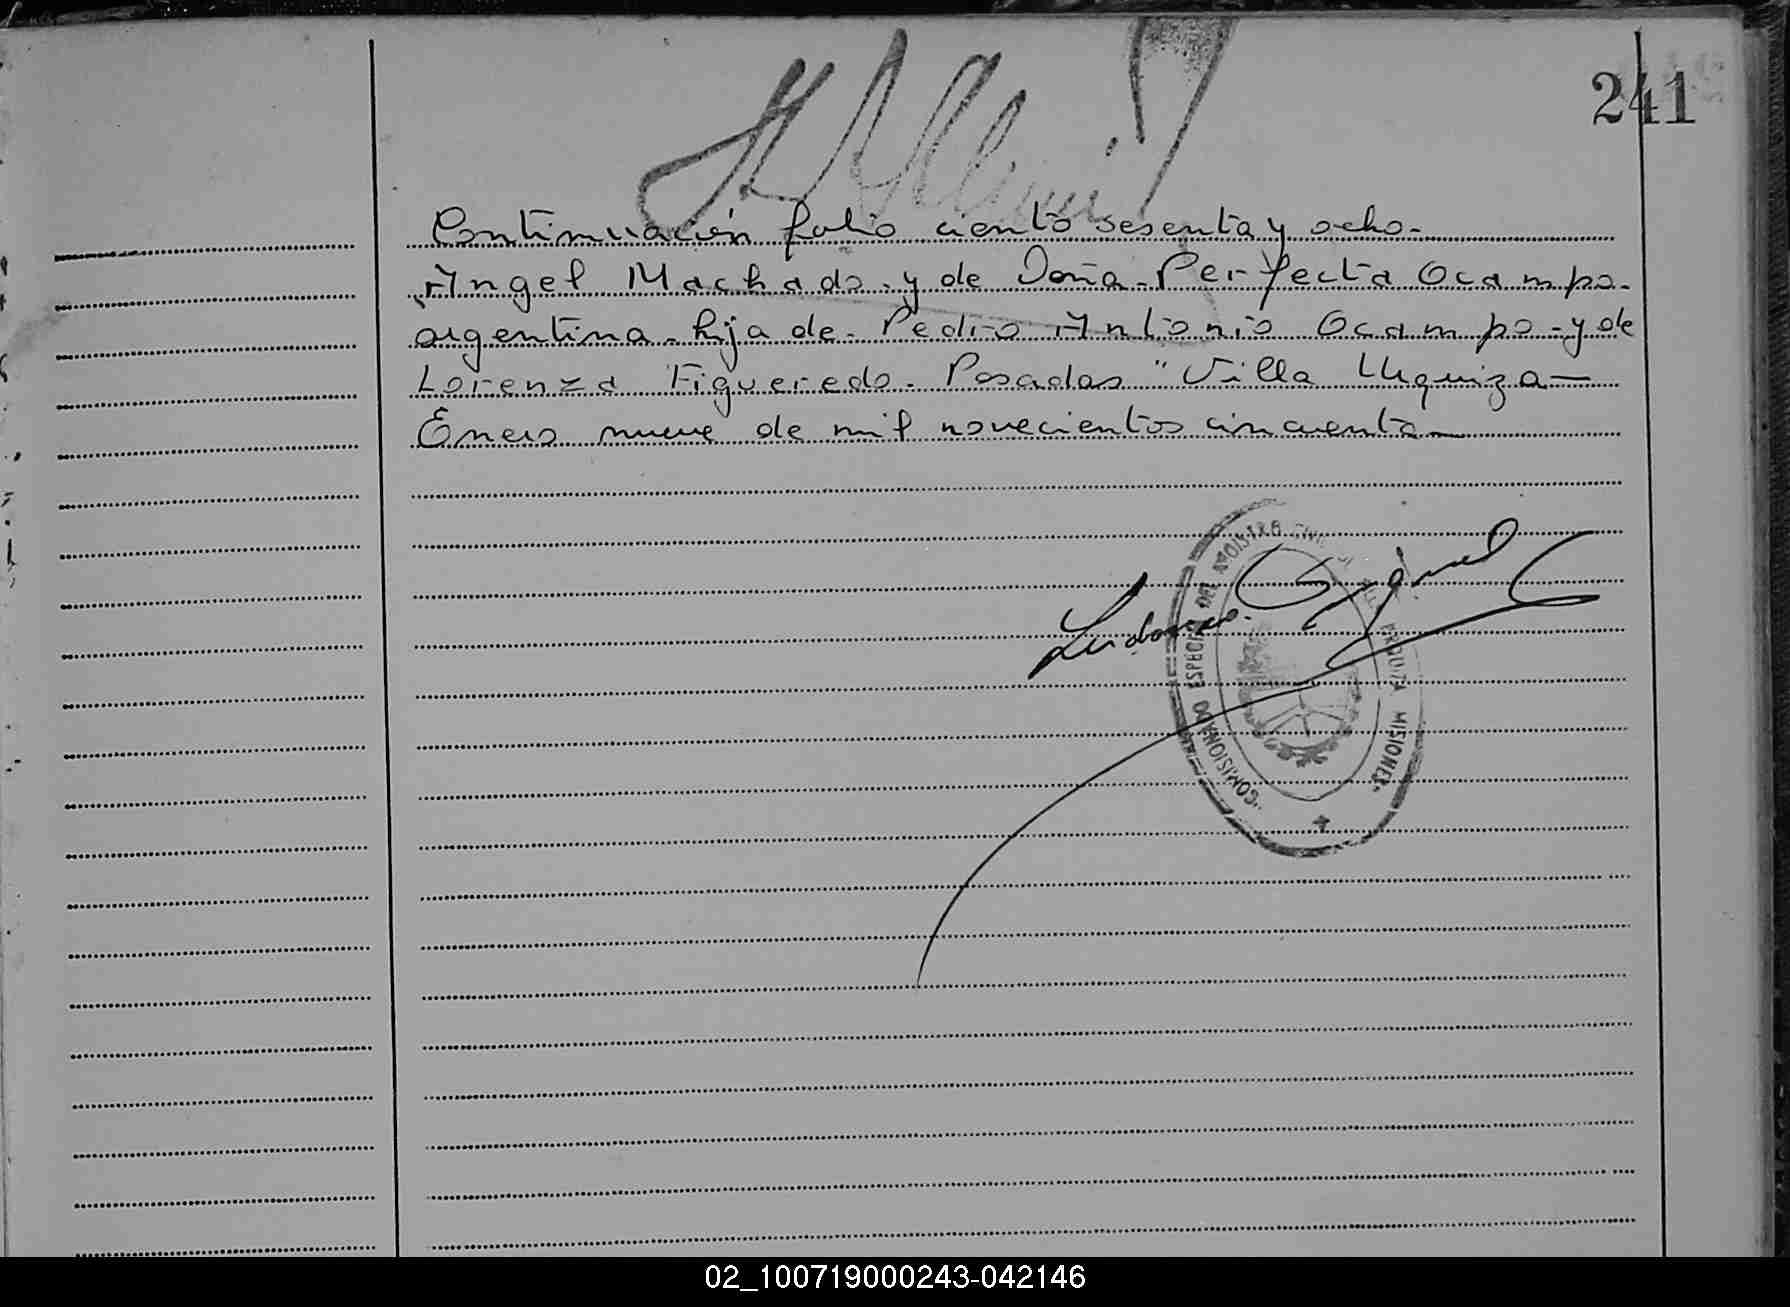 241
Continuación folio ciento sesenta y ocho.
Angel Machado. y de Doña. Perfecta Ocampo.
argentina. hija de. Pedro Antonio Ocampo - y de
Lorenza Figueredo. Posadas "Villa Urquiza—
Enero nueve de mil novecientos cincuenta—
"COMISIONADO ESPECIAL DEL REGISTRO CIVIL URQUIZA MISIONES"
02_100719000243-042146